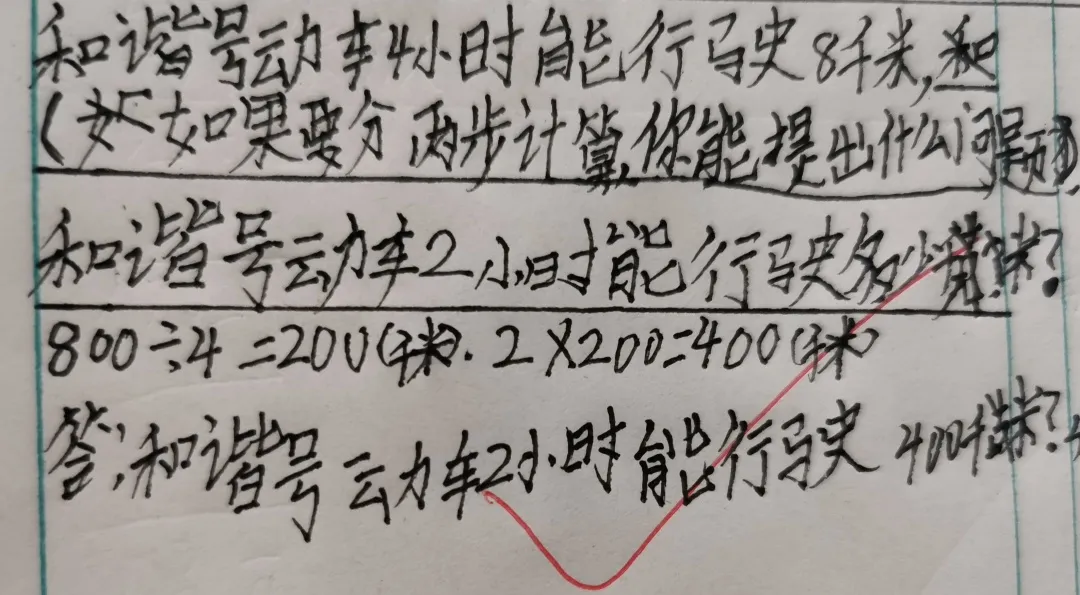 和谐号动力车4小时能行驶8千米,
(如果要分两步计算,你能提出什么问题
和谐号动力车2小时能行驶多少千米?
800÷4=200(千米). 2×200=400(千米)
答,和谐号动力车2小时能行驶400千米?